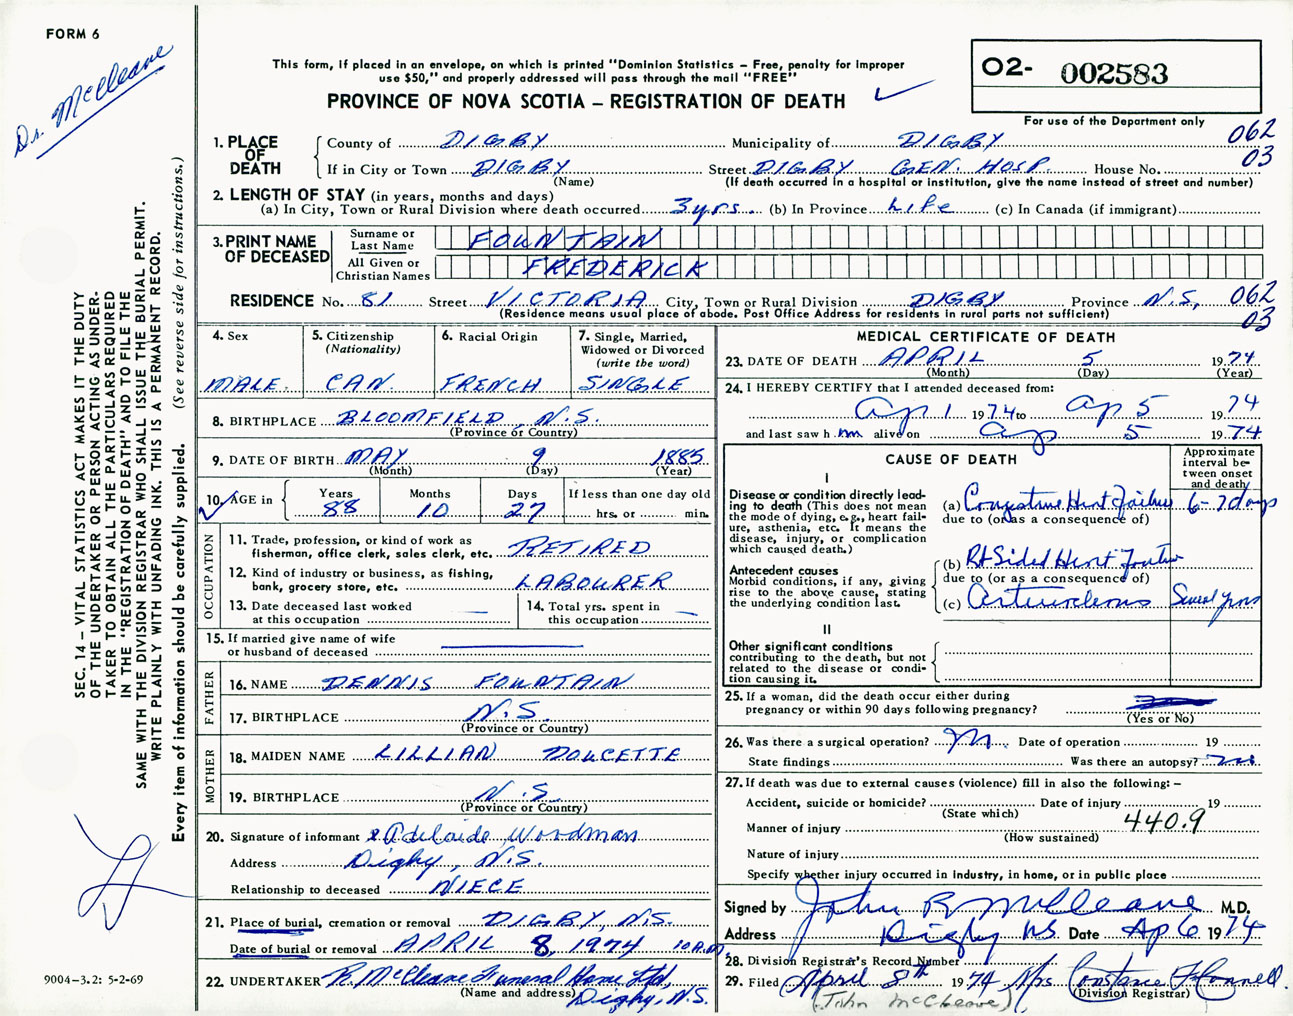 FORM 6
Dr. McCleave
This form, if placed in an envelope, on which is printed "Dominion Statistics – Free, penalty for improper
use $50," and properly addressed will pass through the mail "FREE"
PROVINCE OF NOVA SCOTIA – REGISTRATION OF DEATH
02- 002583
For use of the Department only
062
03
1. PLACE OF DEATH County of DIGBY Municipality of DIGBY
If in City or Town DIGBY Street DIGBY GEN. HOSP. House No.
(Name) (If death occurred in a hospital or institution, give the name instead of street and number)
2. LENGTH OF STAY (in years, months and days)
(a) In City, Town or Rural Division where death occurred 3 yrs. (b) In Province Life (c) In Canada (if immigrant)
3. PRINT NAME OF DECEASED
Surname or Last Name FOUNTAIN
All Given or Christian Names FREDERICK
RESIDENCE No. 81 Street VICTORIA City, Town or Rural Division DIGBY Province N.S. 062
(Residence means usual place of abode. Post Office Address for residents in rural parts not sufficient) 03
4. Sex MALE
5. Citizenship (Nationality) CAN.
6. Racial Origin FRENCH
7. Single, Married, Widowed or Divorced (write the word) SINGLE
8. BIRTHPLACE BLOOMFIELD, N.S.
(Province or Country)
9. DATE OF BIRTH MAY 9 1885
(Month) (Day) (Year)
10. AGE in Years 88 Months 10 Days 27 If less than one day old hrs. or min.
OCCUPATION
11. Trade, profession, or kind of work as fisherman, office clerk, sales clerk, etc. RETIRED
12. Kind of industry or business, as fishing, bank, grocery store, etc. LABOURER
13. Date deceased last worked at this occupation
14. Total yrs. spent in this occupation
15. If married give name of wife or husband of deceased
FATHER
16. NAME DENNIS FOUNTAIN
17. BIRTHPLACE N.S.
(Province or Country)
MOTHER
18. MAIDEN NAME LILLIAN DOUCETTE
19. BIRTHPLACE N.S.
(Province or Country)
20. Signature of informant x Adelaide Woodman
Address Digby, N.S.
Relationship to deceased NIECE
21. Place of burial, cremation or removal DIGBY, N.S.
Date of burial or removal APRIL 8, 1974 10 A.M.
22. UNDERTAKER R. McCleave Funeral Home Ltd,
(Name and address) Digby, N.S.
MEDICAL CERTIFICATE OF DEATH
23. DATE OF DEATH APRIL 5 1974
(Month) (Day) (Year)
24. I HEREBY CERTIFY that I attended deceased from:
Ap 1 1974 to Ap 5 1974
and last saw h im alive on Ap 5 1974
CAUSE OF DEATH
Approximate interval between onset and death
I
Disease or condition directly leading to death (This does not mean the mode of dying, e.g., heart failure, asthenia, etc. It means the disease, injury, or complication which caused death.)
(a) Congestive Heart Failure 6-7 days
due to (or as a consequence of)
Antecedent causes
Morbid conditions, if any, giving rise to the above cause, stating the underlying condition last.
(b) Rt Sided Heart Failure
due to (or as a consequence of)
(c) Several years
II
Other significant conditions contributing to the death, but not related to the disease or condition causing it.
25. If a woman, did the death occur either during pregnancy or within 90 days following pregnancy?
(Yes or No)
26. Was there a surgical operation? no Date of operation 19
State findings Was there an autopsy? no
27. If death was due to external causes (violence) fill in also the following: –
Accident, suicide or homicide? Date of injury 19
(State which)
Manner of injury 440.9
(How sustained)
Nature of injury
Specify whether injury occurred in industry, in home, or in public place
Signed by John R McCleave M.D.
Address Digby NS Date Ap 6 1974
28. Division Registrar's Record Number
29. Filed April 8th 1974 Mrs Constance O'Connell
(Division Registrar)
(John McCleave)
SEC. 14 – VITAL STATISTICS ACT MAKES IT THE DUTY
OF THE UNDERTAKER OR PERSON ACTING AS UNDER-
TAKER TO OBTAIN ALL THE PARTICULARS REQUIRED
IN THE "REGISTRATION OF DEATH" AND TO FILE THE
SAME WITH THE DIVISION REGISTRAR WHO SHALL ISSUE THE BURIAL PERMIT.
WRITE PLAINLY WITH UNFADING INK. THIS IS A PERMANENT RECORD.
Every item of information should be carefully supplied. (See reverse side for instructions.)
9004–3.2: 5-2-69